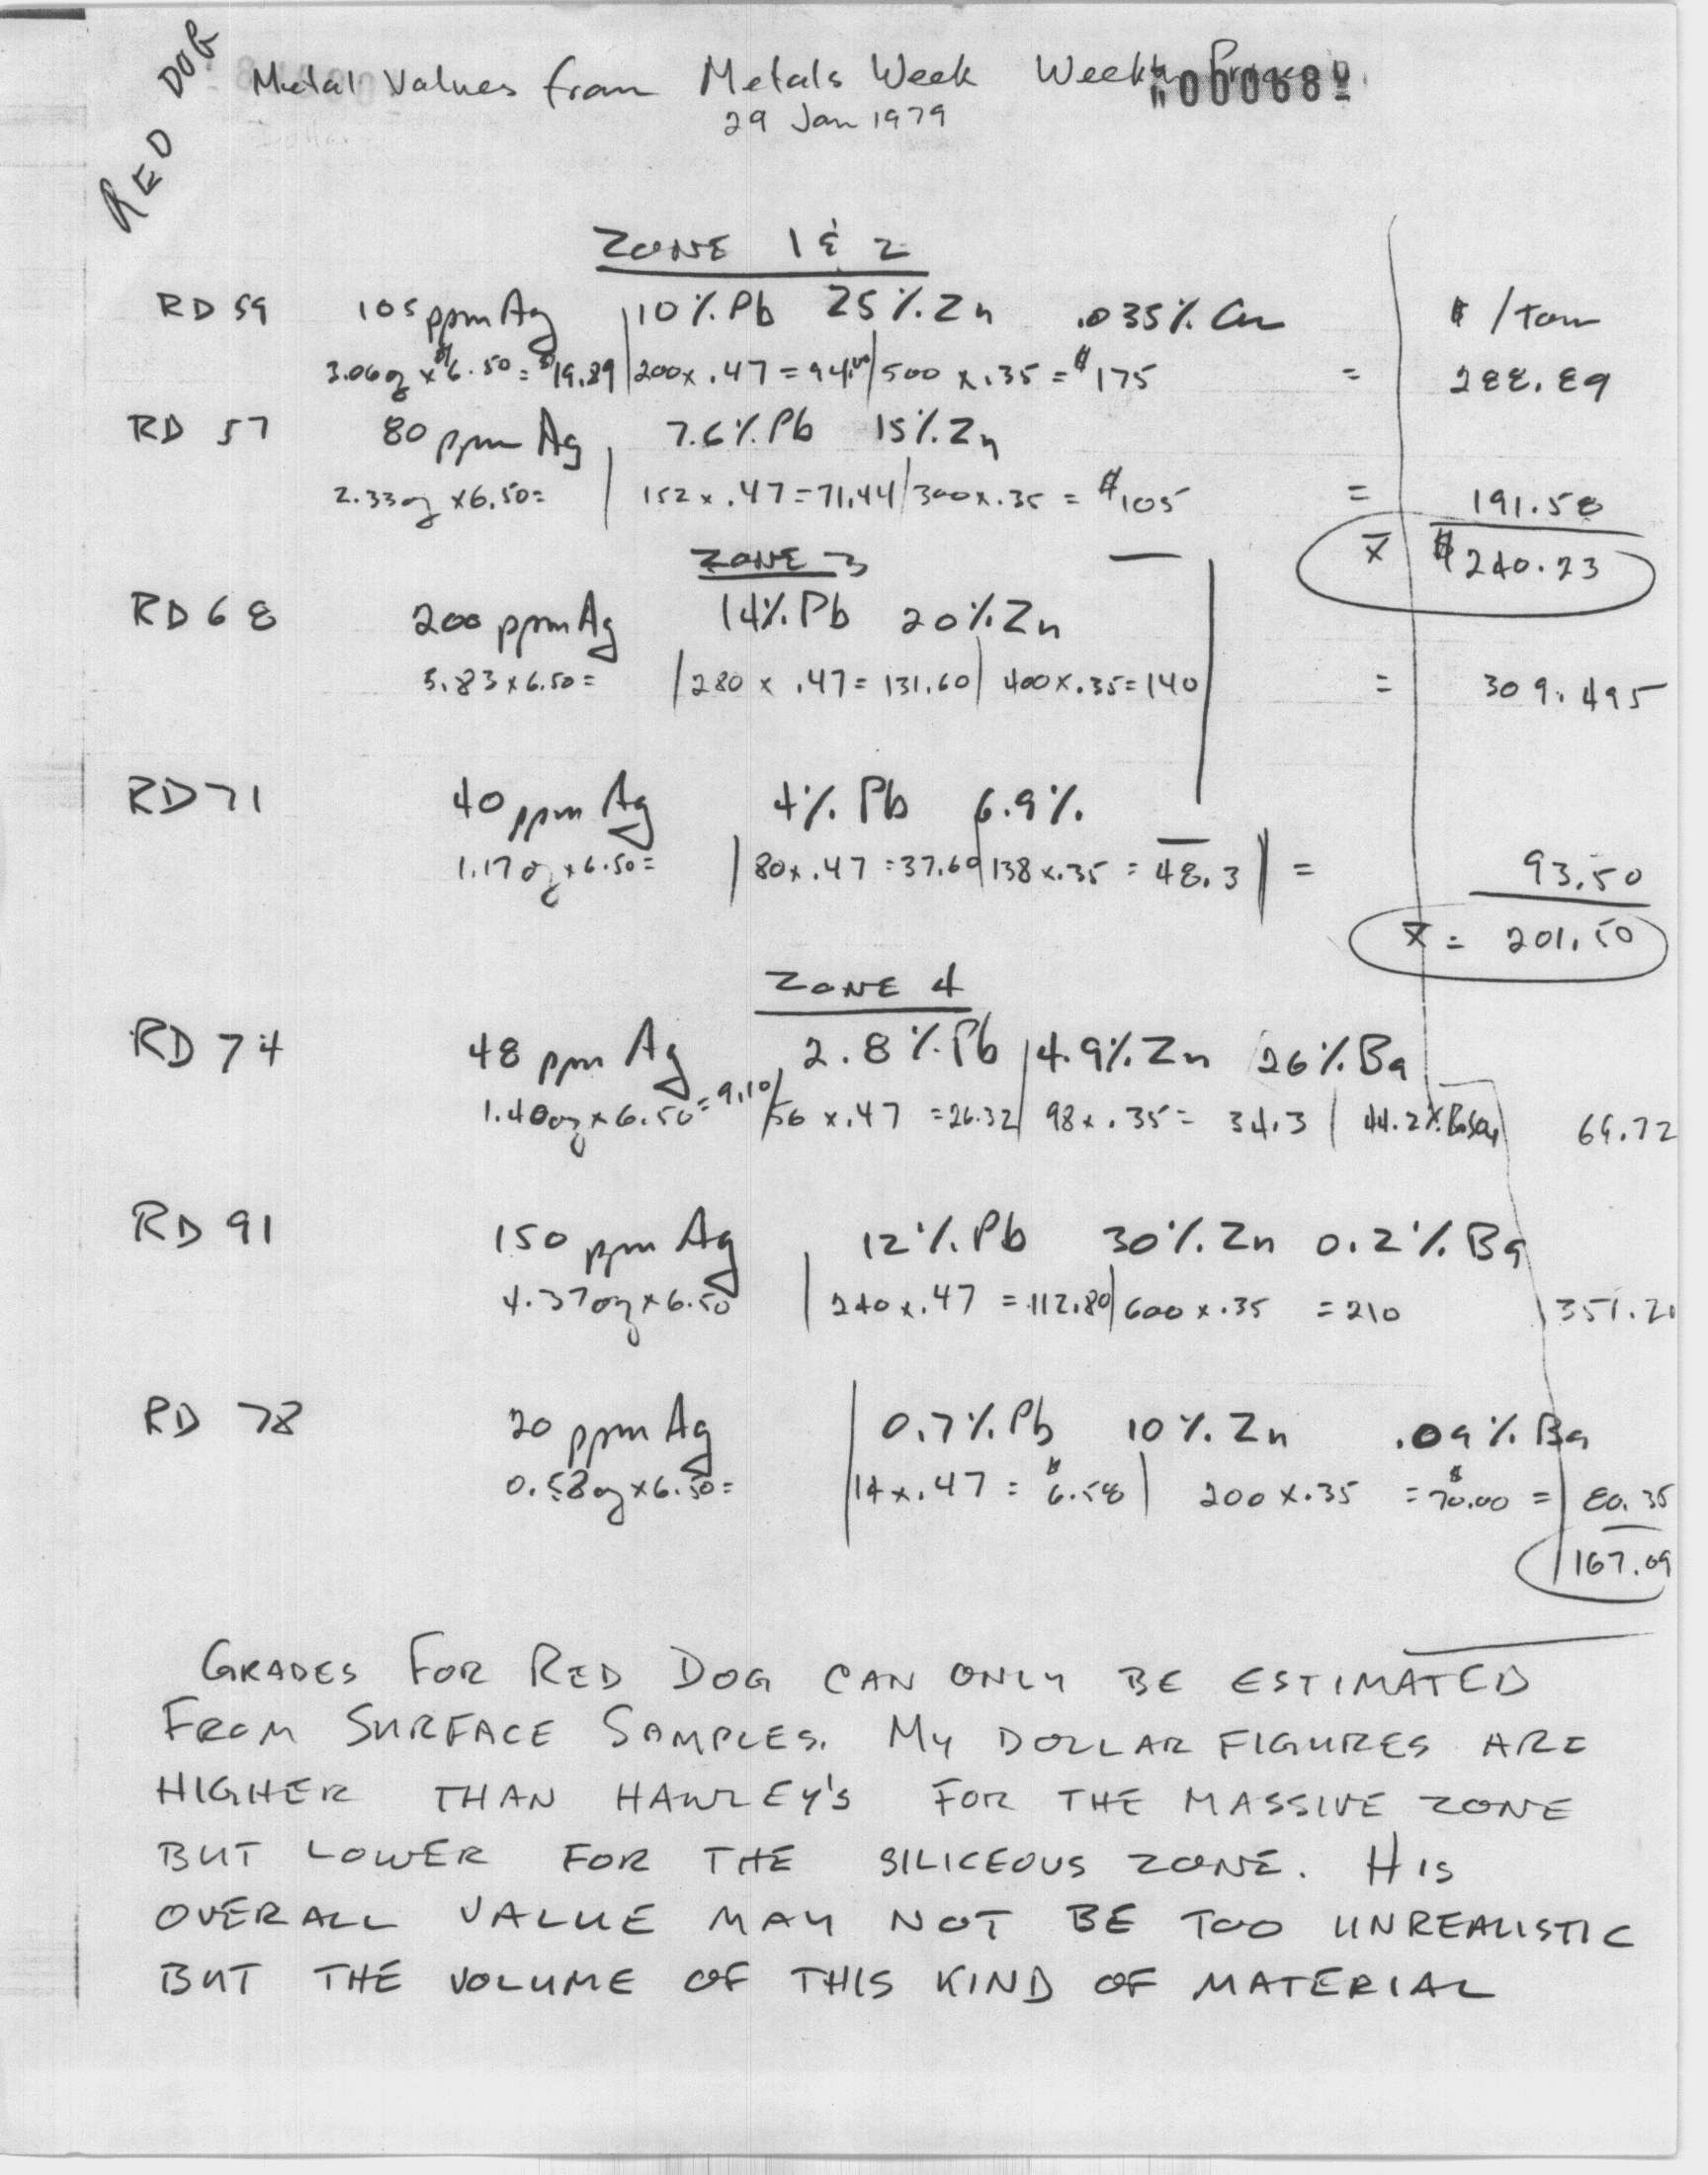 RED DOG
Metal Values from Metals Week Weekly Prices
000068
29 Jan 1979
ZONE 1 & 2
RD 59 105 ppm Ag 10% Pb 25% Zn .035% Cu $ / Ton
3.06 oz x $6.50 = $19.89 | 200 x .47 = 94.00 | 500 x .35 = $175 = 288.89
RD 57 80 ppm Ag 7.6% Pb 15% Zn
2.33 oz x 6.50 = | 152 x .47 = 71.44 | 300 x .35 = $105 = 191.58
x̄ $240.23
ZONE 3
RD 68 200 ppm Ag 14% Pb 20% Zn
5.83 x 6.50 = | 280 x .47 = 131.60 | 400 x .35 = 140 = 309.495
RD 71 40 ppm Ag 4% Pb 6.9%
1.17 oz x 6.50 = | 80 x .47 = 37.60 | 138 x .35 = 48.3 | = 93.50
x̄ = 201.50
ZONE 4
RD 74 48 ppm Ag 2.8% Pb | 4.9% Zn 26% Ba
1.40 oz x 6.50 = 9.10 / 56 x .47 = 26.32 | 98 x .35 = 34.3 | 44.2% BaSO4 69.72
RD 91 150 ppm Ag 12% Pb 30% Zn 0.2% Ba
4.37 oz x 6.50 | 240 x .47 = 112.80 | 600 x .35 = 210 351.20
RD 78 20 ppm Ag | 0.7% Pb 10% Zn .09% Ba
0.58 oz x 6.50 = | 14 x .47 = $6.58 | 200 x .35 = $70.00 = 80.35
167.09
GRADES FOR RED DOG CAN ONLY BE ESTIMATED
FROM SURFACE SAMPLES. MY DOLLAR FIGURES ARE
HIGHER THAN HAWLEY'S FOR THE MASSIVE ZONE
BUT LOWER FOR THE SILICEOUS ZONE. HIS
OVERALL VALUE MAY NOT BE TOO UNREALISTIC
BUT THE VOLUME OF THIS KIND OF MATERIAL